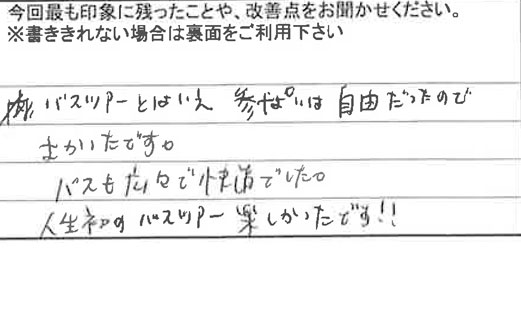 今回最も印象に残ったことや、改善点をお聞かせください。
※書ききれない場合は裏面をご利用下さい
バスツアーとはいえ 参ぱいは 自由だったので
よかったです。
バスも広々で快適でした。
人生初のバスツアー楽しかったです!!